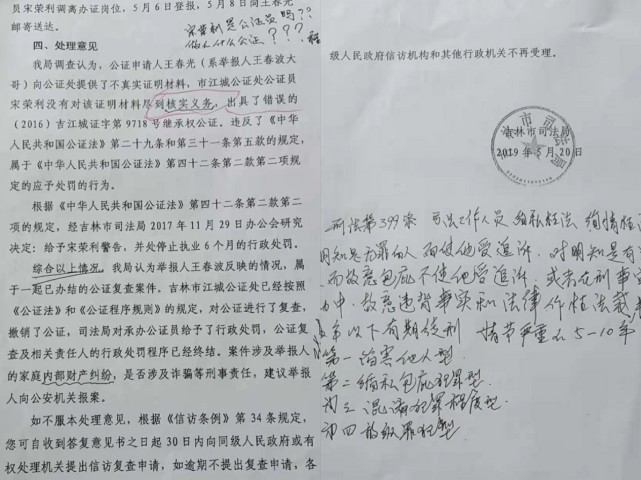 员宋荣利调离办证岗位，5月6日登报，5月8日向王春光
邮寄送达。
宋荣利是公证员吗？？
做人什么公证？？？
四、处理意见
我局调查认为，公证申请人王春光（系举报人王春波大
哥）向公证处提供了不真实证明材料，市江城公证处公证员
宋荣利没有对该证明材料尽到核实义务，出具了错误的
（2016）吉江城证字第9718号继承权公证。违反了《中华
人民共和国公证法》第二十九条和第三十一条第五款的规定，
属于《中华人民共和国公证法》第四十二条第二款第二项规
定的应予处罚的行为。
根据《中华人民共和国公证法》第四十二条第二款第二
项的规定，经吉林市司法局2017年11月29日办公会研究
决定：给予宋荣利警告，并处停止执业6个月的行政处罚。
综合以上情况，我局认为举报人王春波反映的情况，属
于一起已办结的公证复查案件。吉林市江城公证处已经按照
《公证法》和《公证程序规则》的规定，对公证进行了复查，
撤销了公证，司法局对承办公证员给予了行政处罚，公证复
查及相关责任人的行政处罚程序已经终结。案件涉及举报人
的家庭内部财产纠纷，是否涉及诈骗等刑事责任，建议举报
人向公安机关报案。
如不服本处理意见，根据《信访条例》第34条规定，
您可自收到答复意见书之日起30日内向同级人民政府或有
权处理机关提出信访复查申请，如逾期不提出复查申请，各
级人民政府信访机构和其他行政机关不再受理。
吉林市司法局
2019年5月20日
刑法第399条 司法工作人员 徇私枉法 徇情枉法
明知是无罪的人而使他受追诉，对明知是有
而故意包庇不使他受追诉，或者在刑事
中，故意违背事实和法律作枉法裁
年以下有期徒刑 情节严重 5-10年
第一 伤害他人型
第二 徇私包庇犯罪型
为三 混淆犯罪程度型
为四 放纵罪犯型